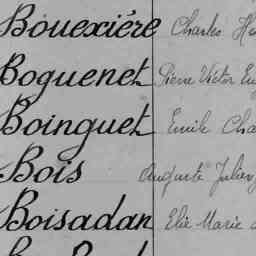 Bouexiére Charles
Boguenet Pierre Victor
Boinguet Emile
Bois Auguste Julien
Boisadan Elie Marie